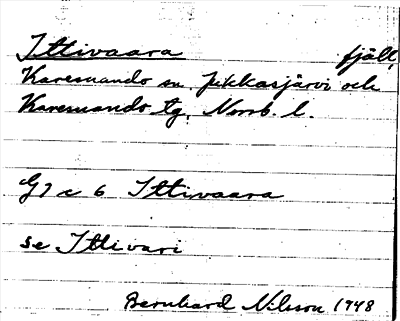 Ittivaara fjäll,
Karesuando sn. Jukkasjärvi och
Karesuando tg. Norrb. l.
G7 c 6 Ittivaara
se Ittivari
Bernhard Nilsson 1948